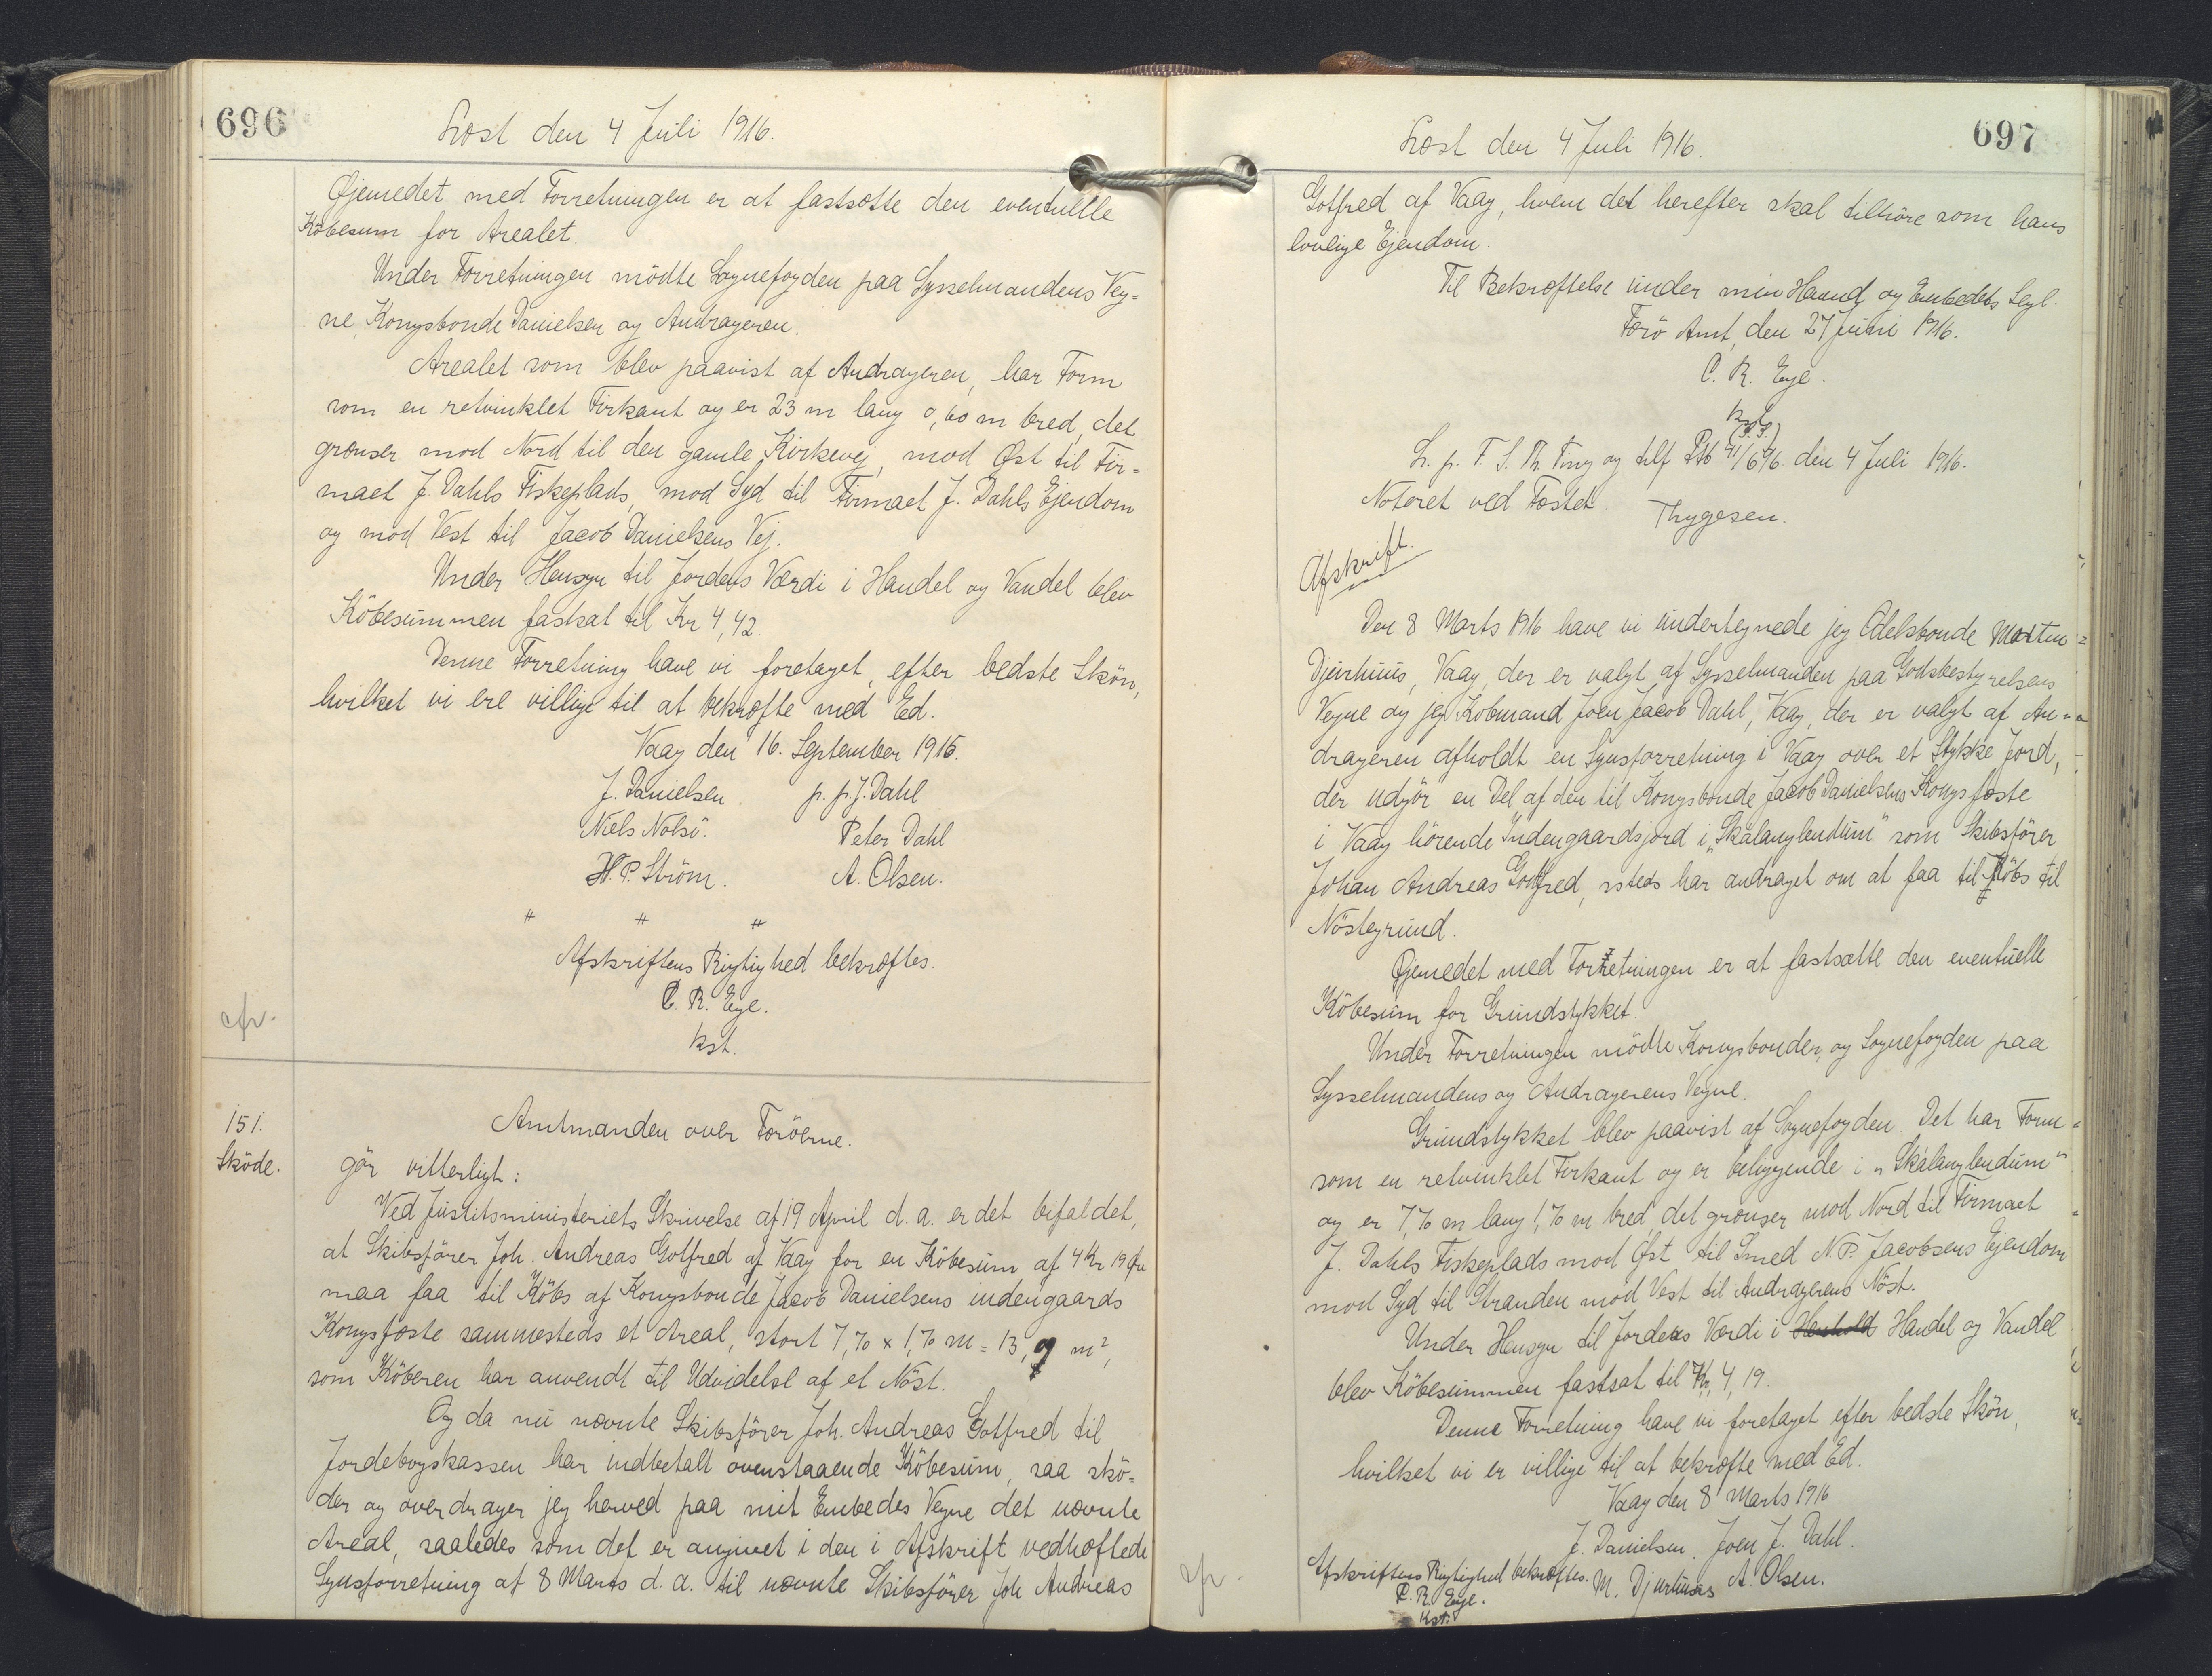 696
Læst den 4 Juli 1916.
Øjemedet med Forretningen er at fastsætte den eventuelle
Köbesum for Arealet.
Under Forretningen mödte Sognefogden paa Sysselmandens Veg=
ne, Kongsbonde Danielsen og Andrageren.
Arealet som blev paavist af Andrageren, har Form
som en retvinklet Firkant og er 23 m lang 0,60 m bred, det
grænser mod Nord til den gamle Kirkevej, mod Øst til Fir=
maet J. Dahls Fiskeplads, mod Syd til Firmaet J. Dahls Ejendom
og mod Vest til Jacob Danielsens Vej.
Under Hensyn til Jordens Værdi i Handel og Vandel blev
Köbesummen fastsat til Kr 4,42.
Denne Forretning have vi foretaget, efter bedste Skön,
hvilket vi ere villige til at bekræfte med Ed.
Vaag den 16. September 1915.
J. Danielsen. p. p. J. Dahl
Niels Nolsö. Peter Dahl
H. P. Ström. A. Olsen.
" " "
Afskriftens Rigtighed bekræftes.
C. R. Eye.
kst.
cfr.
151.
Sköde.
Amtmanden over Færöerne.
gör vitterligt:
Ved Justitsministeriets Skrivelse af 19 April d. a. er det bifaldet,
at Skibsförer Joh. Andreas Gotfred af Vaag for en Köbesum af 4 Kr 19 Øre
maa faa til Köbs af Kongsbonde Jacob Danielsens indengaards
Kongsfæste sammesteds et Areal, stort 7,70 x 1,70 m = 13,9 m²,
som Köberen har anvendt til Udvidelse af et Nöst.
Og da nu nævnte Skibsförer Joh. Andreas Gotfred til
Jordebogskassen har indbetalt ovenstaaende Köbesum, saa skö=
der og overdrager jeg herved paa mit Embedes Vegne det nævnte
Areal, saaledes som det er angivet i den i Afskrift vedhæftede
Synsforretning af 8 Marts d. a. til nævnte Skibsförer Joh Andreas
697
Læst den 4 Juli 1916.
Gotfred af Vaag, hvem det herefter skal tilhöre som hans
lovlige Ejendom.
Til Bekræftelse under min Haand og Embedets Segl.
Færö Amt, den 27 Juni 1916.
C. R. Eye.
kst.
(L. S.)
L. p. F. S. Th. Ting og tilf Ptb 41/696 den 4 Juli 1916.
Noteret ved Fæstet. Thygesen.
Afskrift.
Den 8 Marts 1916 have vi undertegnede jeg Odelsbonde Morten
Djurhuus, Vaag, der er valgt af Sysselmanden paa Godsbestyrelsens
Vegne og jeg Köbmand Joen Jacob Dahl, Vaag, der er valgt af An=
drageren afholdt en Synsforretning i Vaag over et Stykke Jord,
der udgör en Del af den til Kongsbonde Jacob Danielsens Kongsfæste
i Vaag hörende Indengaardsjord i "Skálanglendum" som Skibsförer
Johan Andreas Gotfred, ssteds har andraget om at faa til Köbs til
Nöstegrund.
Øjemedet med Forretningen er at fastsætte den eventuelle
Köbesum for Grundstykket.
Under Forretningen mödte Kongsbonden, og Sognefogden paa
Sysselmandens og Andragerens Vegne.
Grundstykket blev paavist af Sognefogden. Det har Form
som en retvinklet Firkant og er beliggende i "Skálanglendum"
og er 7,70 m lang 1,70 m bred, det grænser mod Nord til Firmaet
J. Dahls Fiskeplads mod Øst til Smed N. P. Jacobsens Ejendom
mod Syd til Stranden mod Vest til Andragerens Nöst.
Under Hensyn til Jordens Værdi i Henhold Handel og Vandel
blev Köbesummen fastsat til Kr. 4,19.
Denne Forretning have vi foretaget efter bedste Skön,
hvilket vi er villige til at bekræfte med Ed.
Vaag den 8 Marts 1916
J. Danielsen. Joen J. Dahl.
Afskriftens Rigtighed bekræftes. M. Djurhuus A. Olsen.
C. R. Eye.
kst.
cfr.